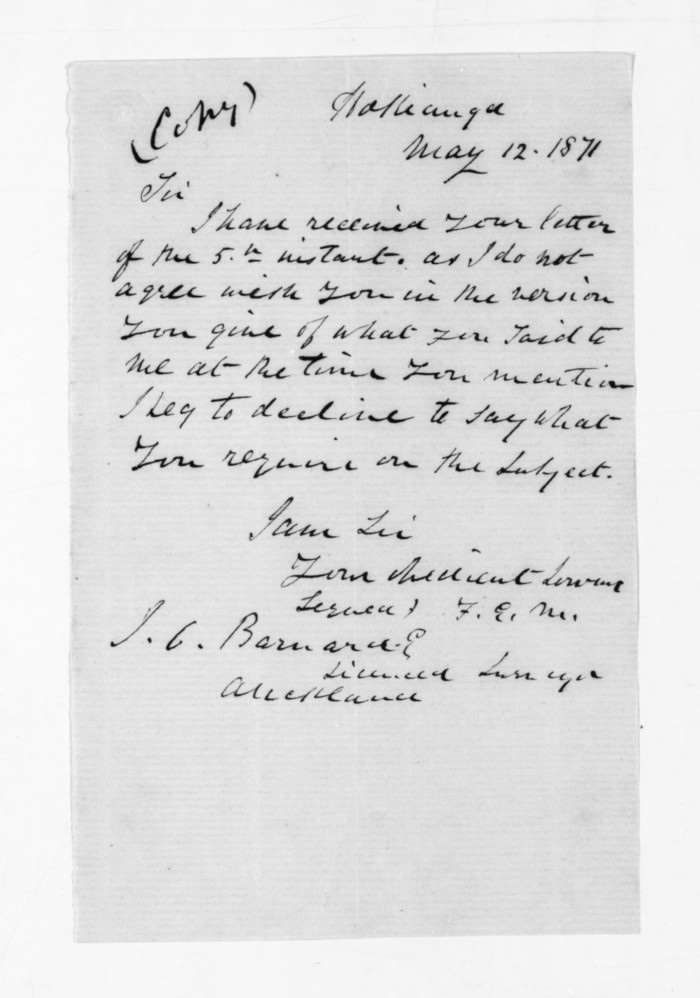 (Copy)
Hokianga
May 12. 1871
Sir
I have received your letter
of the 5.th instant. as I do not
agree with you in the version
you give of what you said to
me at the time you mention
I beg to decline to say what
you require on the subject.
I am Sir
Your obedient Servant
Signed) F. E. M.
J. C. Barnard. E
Licensed Surveyor
Auckland